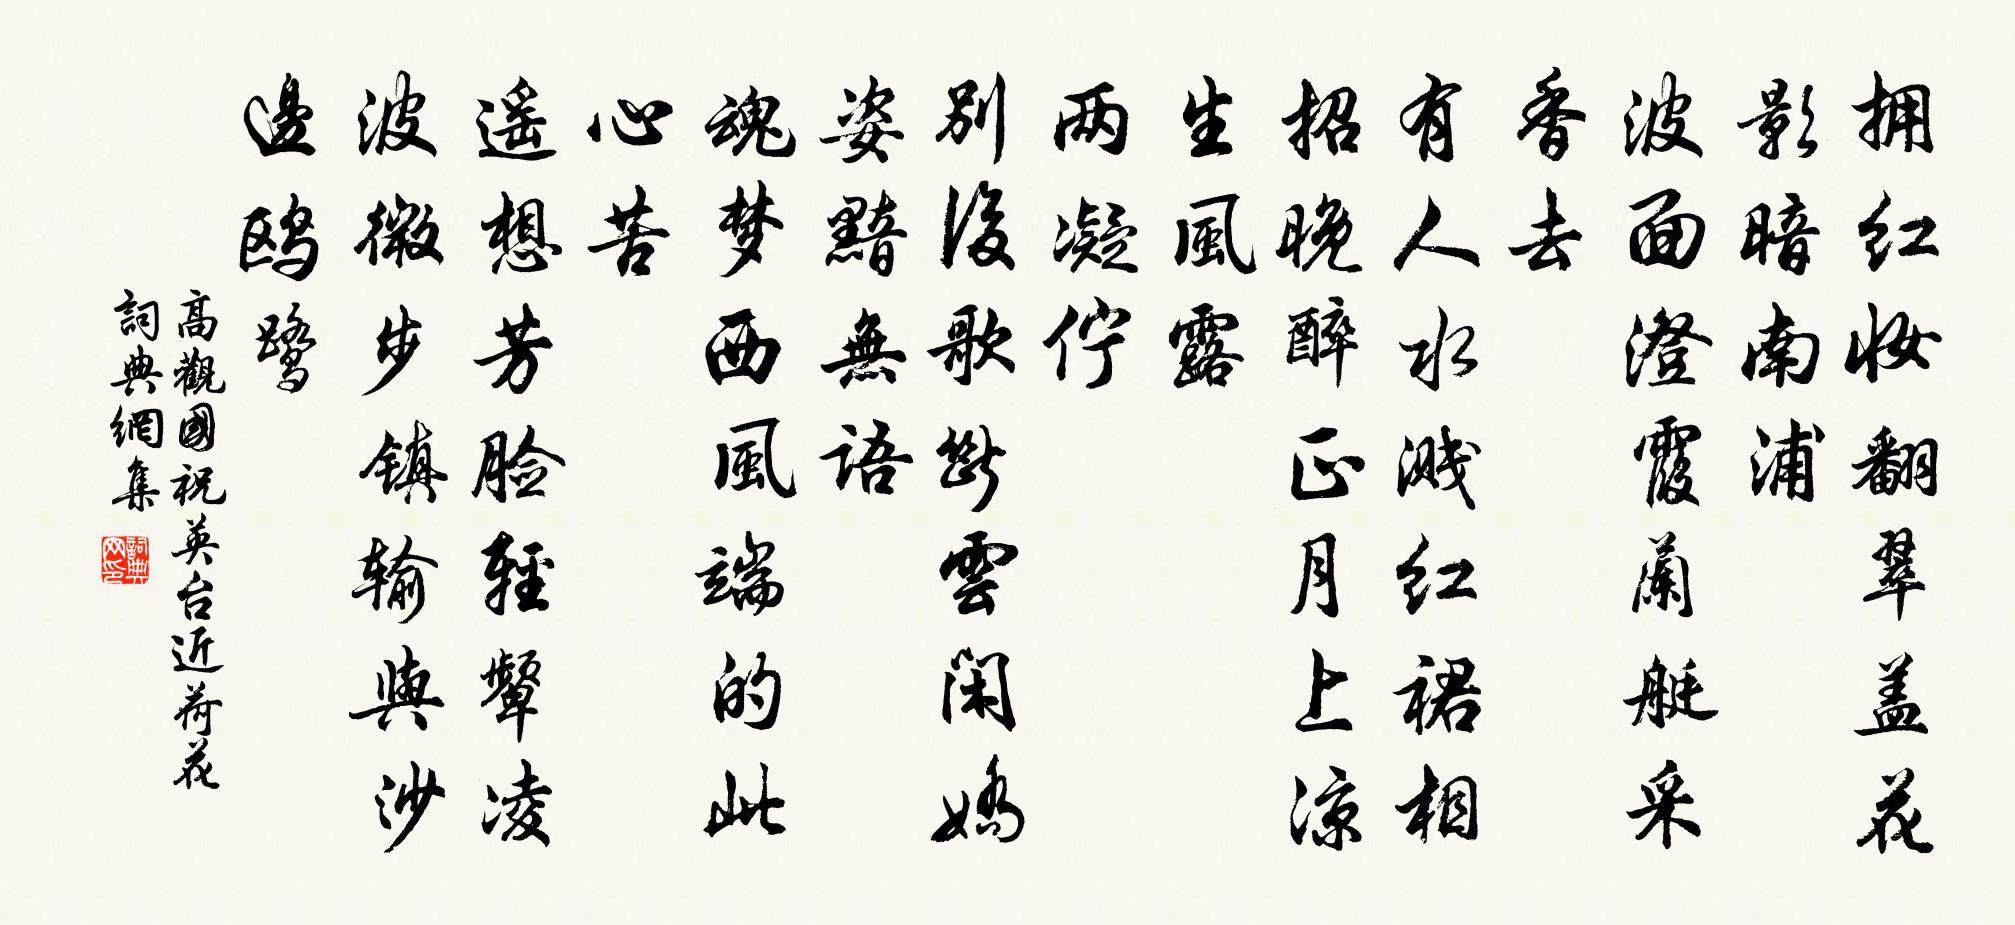 拥红妆翻翠盖花
影暗南浦
波面澄霞兰艇采
香去
有人水溅红裙相
招晚醉正月上凉
生風露
两凝伫
别後歌断雲闲嬌
姿黯無语
魂梦西風端的此
心苦
遥想芳脸輕颦凌
波微步镇输與沙
邊鸥鹭
高觀國祝英台近荷花
詞典網集
詞典网印